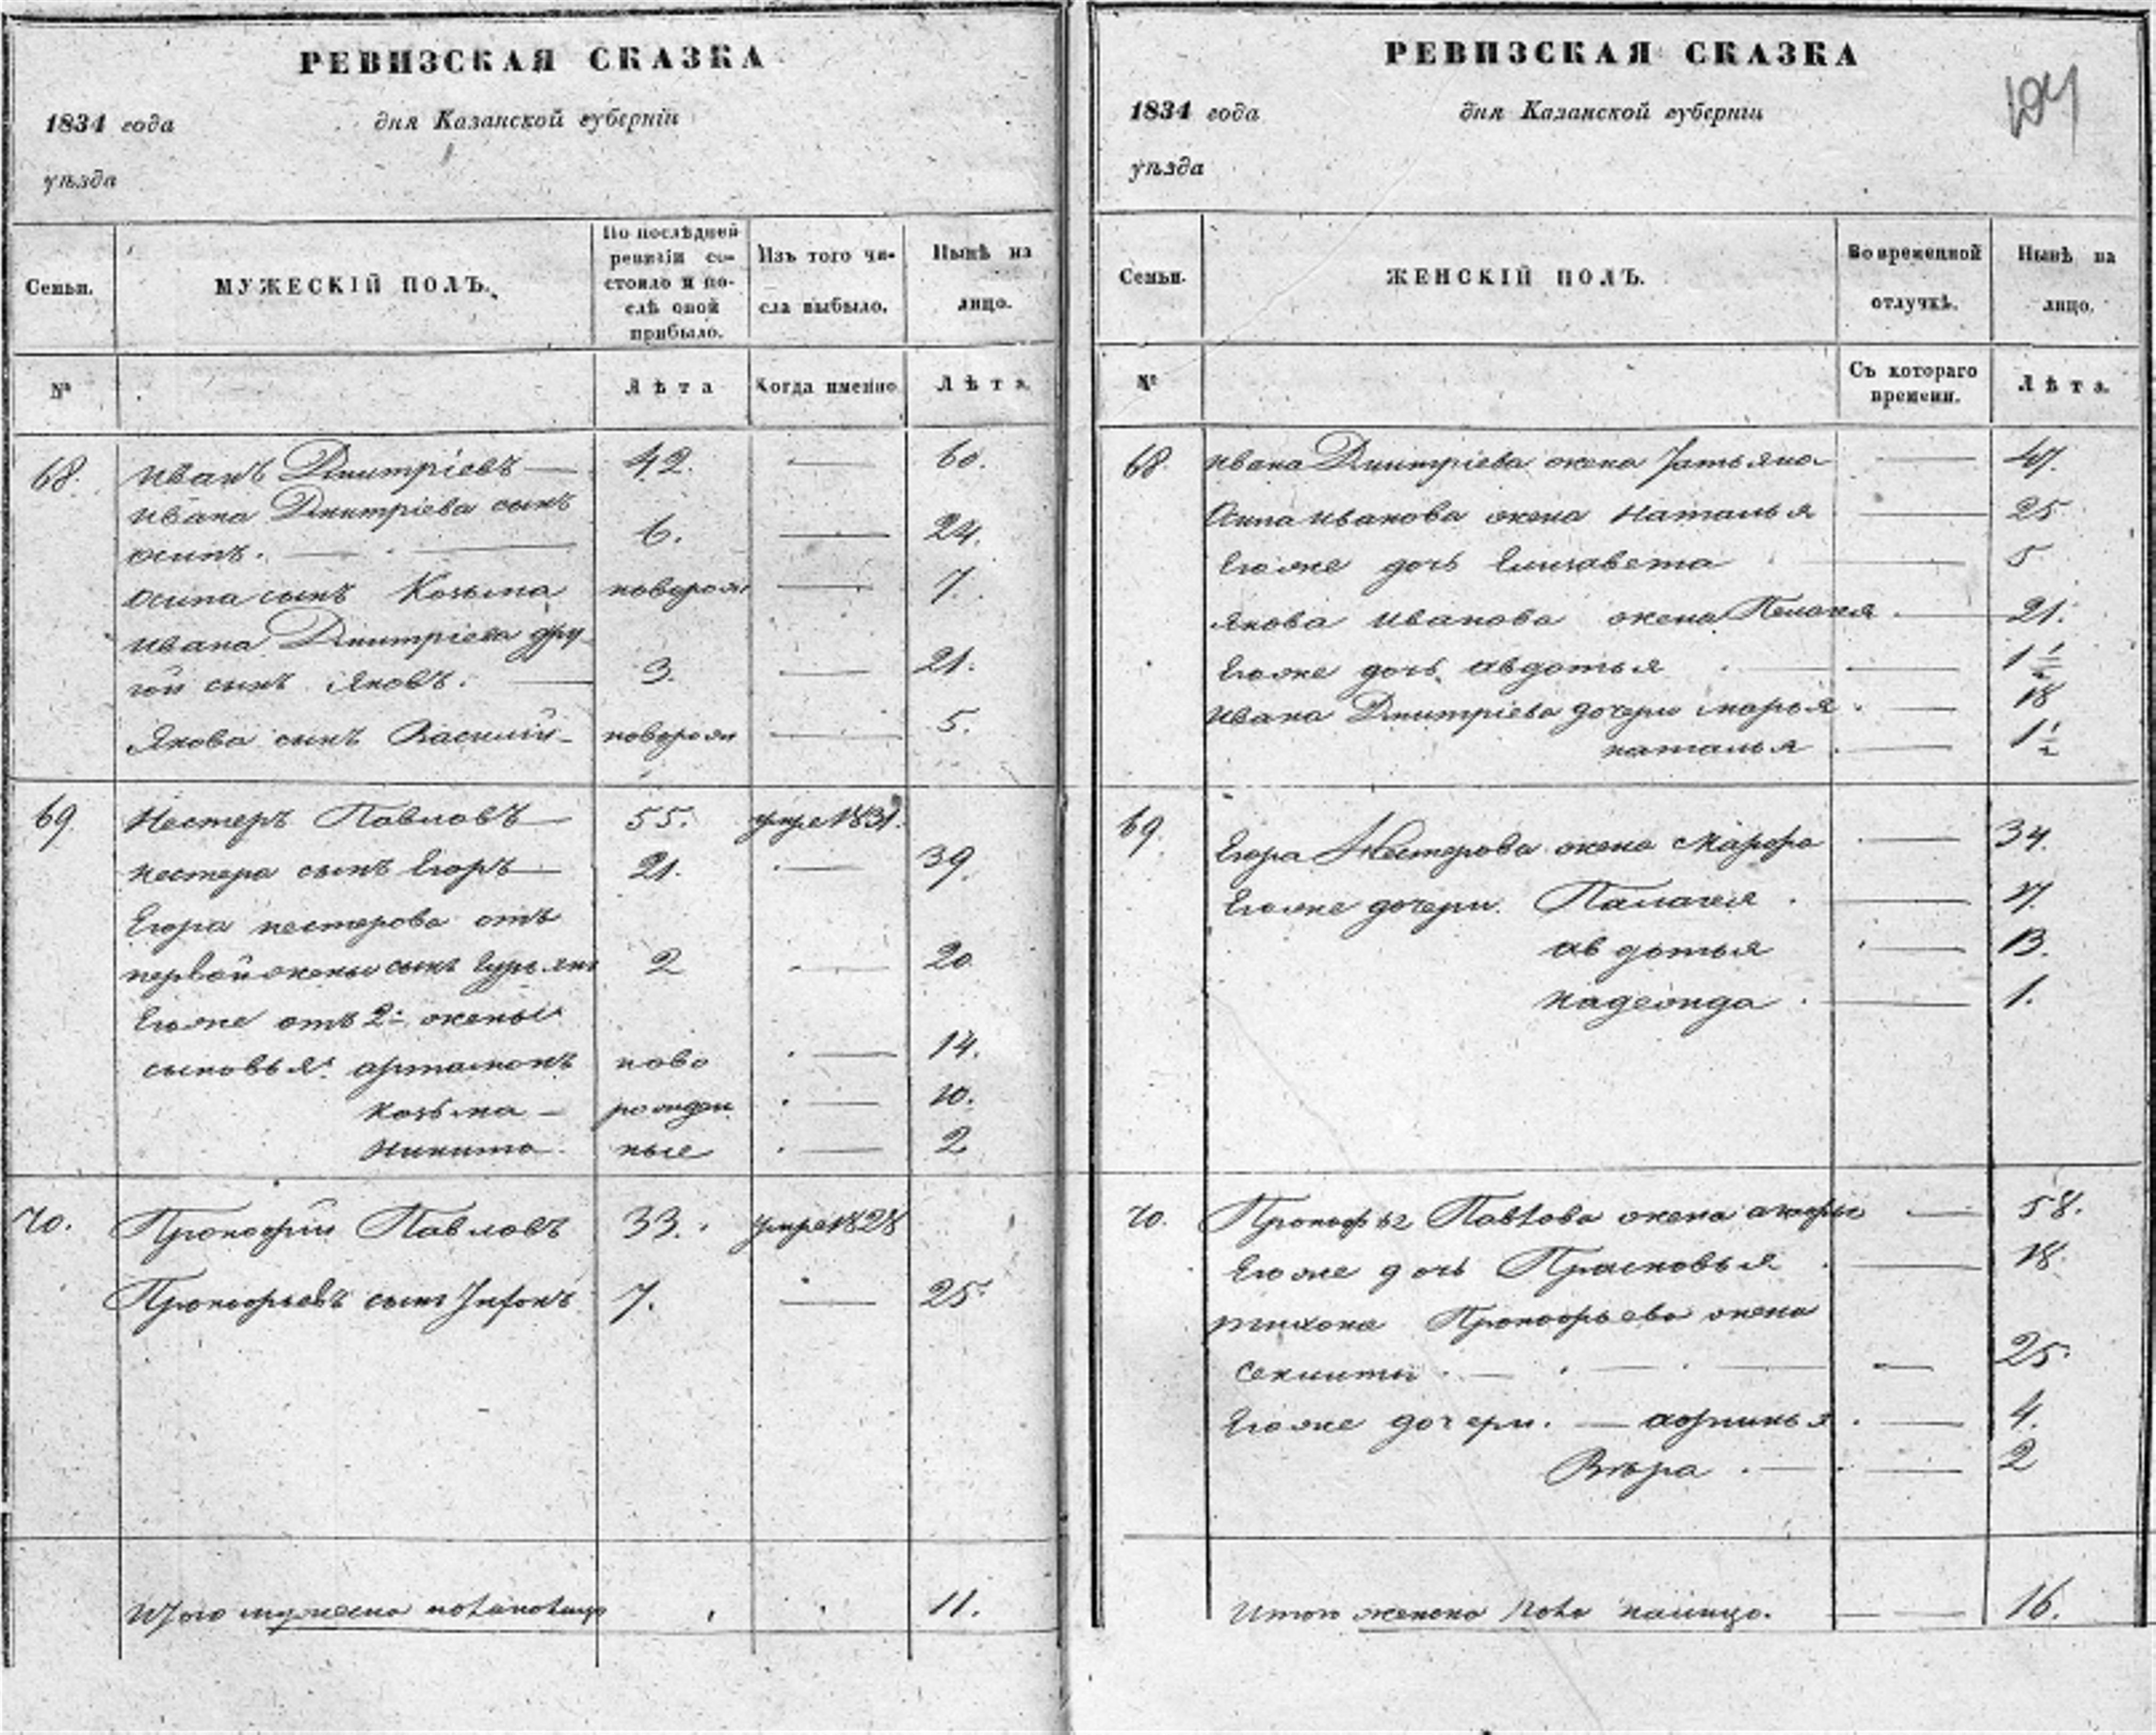 РЕВИЗСКАЯ СКАЗКА
1834 года дня Казанской губерніи
уѣзда
Семьи. МУЖЕСКІЙ ПОЛЪ. По послѣдней ревизіи состояло и послѣ оной прибыло. Изъ того числа выбыло. Нынѣ на лицо.
№ Лѣта Когда именно Лѣта.
68. Иванъ Дмитріевъ — 42. — 60.
Ивана Дмитріева сынъ
осипъ. — 6. — 24.
осипа сынъ Козьма новорож — 7.
Ивана Дмитріева дру-
гой сынъ Яковъ. — 3. — 21.
Якова сынъ Василій — новорож — 5.
69 Нестеръ Павловъ — 55. умре 1831.
нестера сынъ Егоръ — 21. — 39.
Егора нестерова отъ
первой жены сынъ Гурьянъ 2 — 20
Егоже отъ 2й жены
сыновья: артамонъ ново — 14.
Козьма — рожден — 10.
Никита ные — 2
70. Прокофій Павловъ 33. умре 1828
Прокофьевъ сынъ Тихонъ 7. — 25
Итого мужеска пола налицо 11.
РЕВИЗСКАЯ СКАЗКА
1834 года дня Казанской губерніи
уѣзда
Семьи. ЖЕНСКІЙ ПОЛЪ. Во временной отлучкѣ. Нынѣ на лицо.
№ Съ котораго времени. Лѣта.
68 Ивана Дмитріева жена Татьяна — 47.
Осипа Иванова жена Наталья — 25
Егоже дочь Елизавета — 5
Якова Иванова жена Пелагея — 21.
Егоже дочь авдотья — 1 1/2
Ивана Дмитріева дочери марья — 18
наталья — 1 1/2
69. Егора Нестерова жена Марфа — 34.
Егоже дочери Палагея — 17.
авдотья — 13.
надежда — 1.
70. Павлова жена — 58.
Егоже дочь Прасковья — 18.
тихона Прокофьева жена
— 25.
Егоже дочери. — 4.
Вѣра — 2
Итого женска пола налицо. — 16.